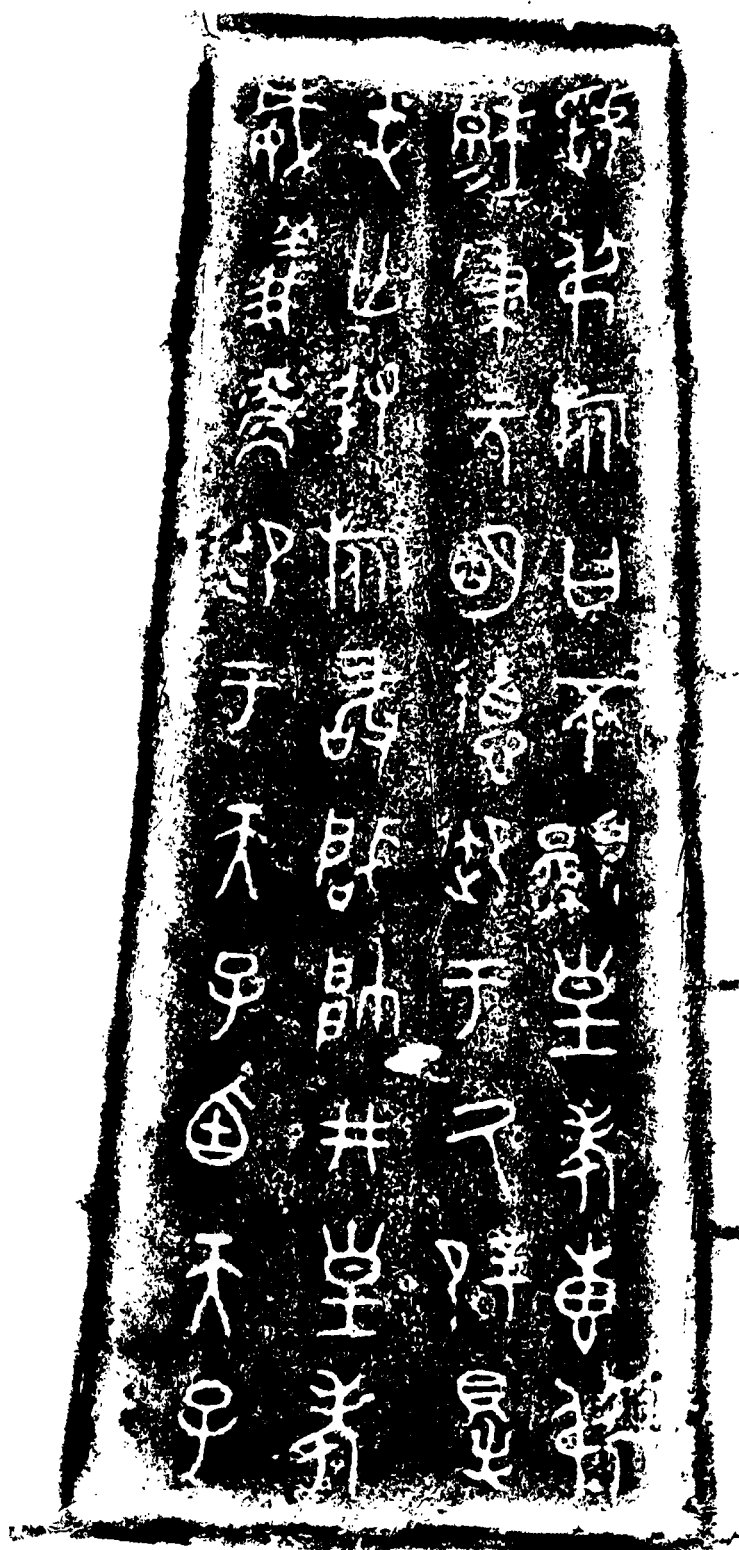 虢弔旅曰不顯皇考叀弔
穆=秉元明德御于氒辟得
屯亡敃旅敢肈帥井皇考
威義御于天子卣天子